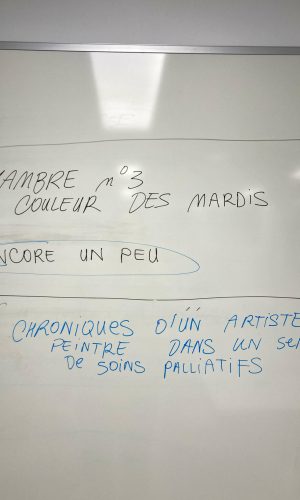 AMBRE n°3
COULEUR DES MARDIS
NCORE UN PEU
CHRONIQUES D'UN ARTISTE
PEINTRE DANS UN SE
DE SOINS PALLIATIFS